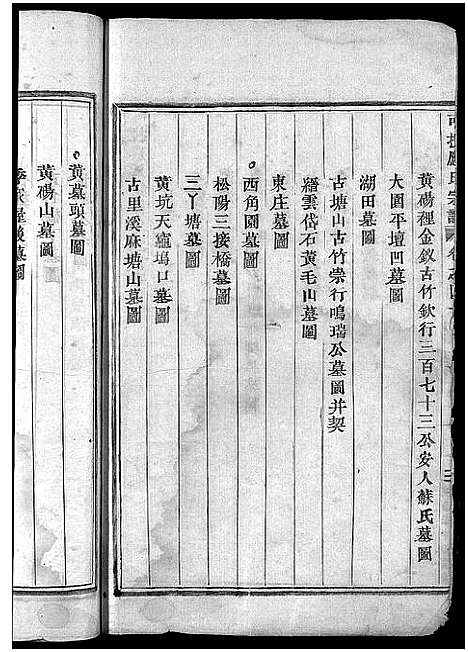 應氏宗譜
黃碭裡金釵古竹欽行三百七十三公安人蘇氏墓圖
大園平壇凹墓圖
湖田墓圖
古塘山古竹崇行鳴瑞公墓圖并契
縉雲岱石黃毛山墓圖
東庄墓圖
西角園墓圖
松陽三接橋墓圖
三丫塘墓圖
黃坑天龍塢口墓圖
古里溪麻塘山墓圖
黃墓頭墓圖
黃碭山墓圖
墓圖